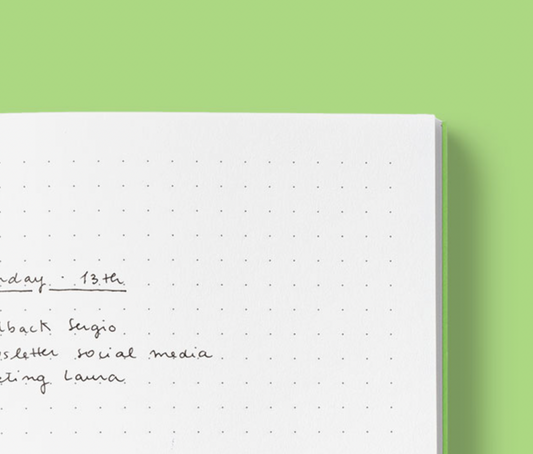 nday · 13th
dback Sergio
sletter social media
eting Laura